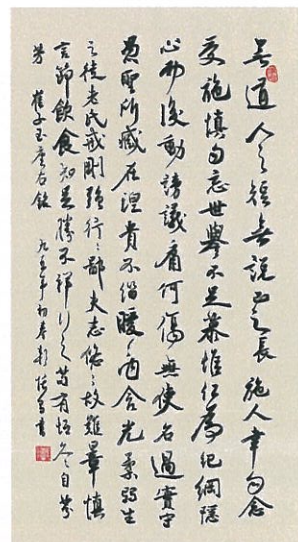 無道人之短無說己之長施人幸勿念
受施慎勿忘世譽不足慕惟仁為紀綱隱
心而後動謗議庸何傷無使名過實守
愚聖所臧在涅貴不緇曖々內含光柔弱生
之徒老氏戒剛強行々鄙夫志悠々故難量慎
言節飲食知足勝不祥行之苟有恒久々自芬
芳 崔子玉座右銘 九五年初春 書